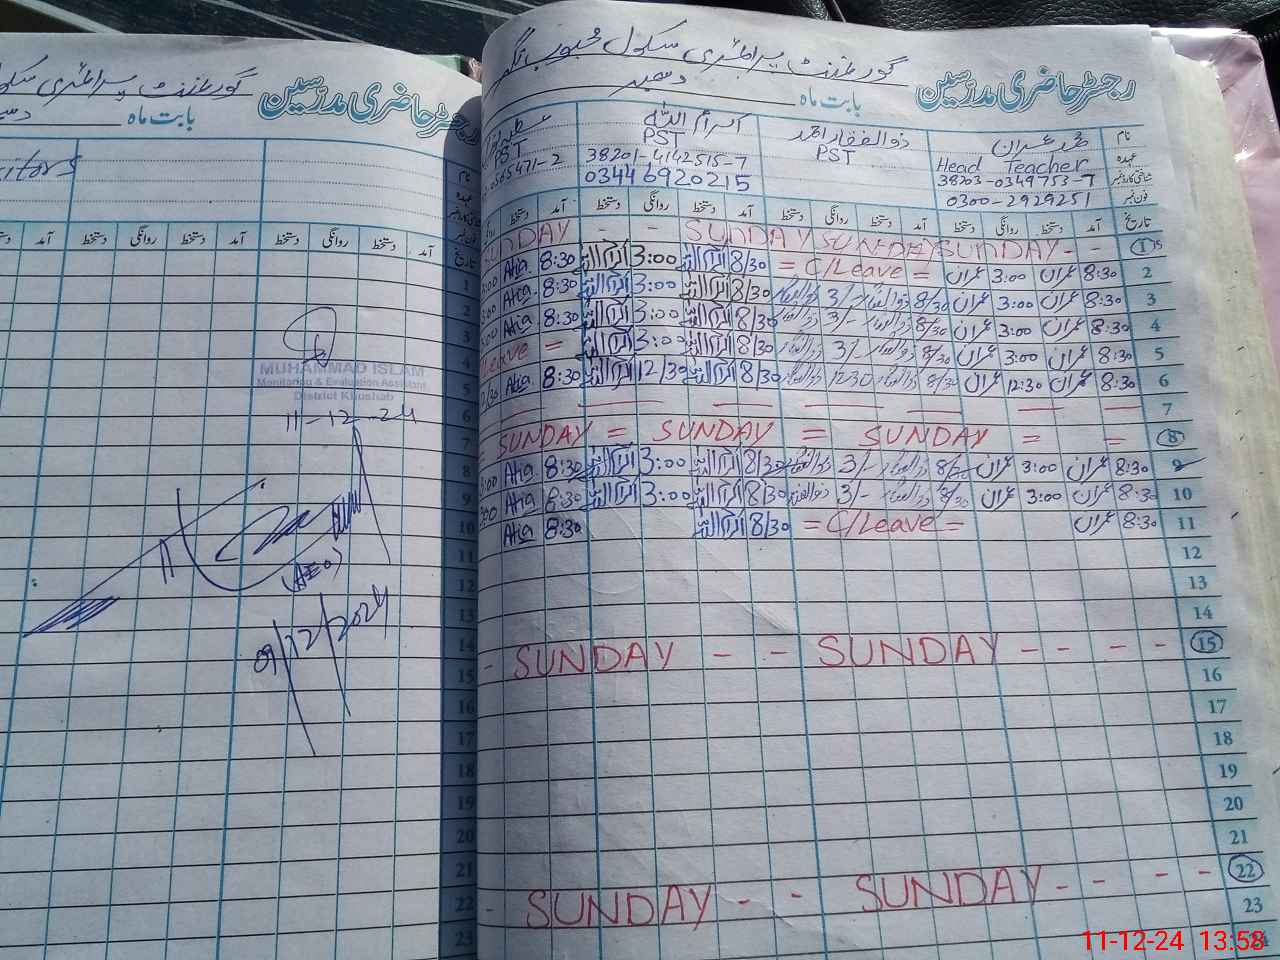 گورنمنٹ پرائمری سکول محبوب نگر
رجسٹر حاضری مدرسین بابت ماہ دسمبر
نام محمد عمران ذوالفقار احمد اکرام اللہ
عہدہ Head Teacher PST PST PST
شناختی کارڈ نمبر 38203-0349753-7 38201-4142515-7
فون نمبر 0300-2929251 03446920215
تاریخ آمد دستخط روانگی دستخط آمد دستخط روانگی دستخط آمد دستخط روانگی دستخط آمد دستخط
1 SUNDAY SUNDAY SUNDAY SUNDAY
2 8:30 عمران 3:00 عمران = C/Leave = 8/30 اکرام اللہ 3:00 اکرام اللہ 8:30 Atia
3 8:30 عمران 3:00 عمران 8/30 ذوالفقار 3/- ذوالفقار 8/30 اکرام اللہ 3:00 اکرام اللہ 8:30 Atia
4 8:30 عمران 3:00 عمران 8/30 ذوالفقار 3/- ذوالفقار 8/30 اکرام اللہ 3:00 اکرام اللہ 8:30 Atia
5 8:30 عمران 3:00 عمران 8/30 ذوالفقار 3/- ذوالفقار 8/30 اکرام اللہ 3:00 اکرام اللہ = Leave
6 8:30 عمران 12:30 عمران 8/30 ذوالفقار 1230 ذوالفقار 8/30 اکرام اللہ 12/30 اکرام اللہ 8:30 Atia
7
8 SUNDAY = SUNDAY = SUNDAY = =
9 8:30 عمران 3:00 عمران 8/30 ذوالفقار 3/- ذوالفقار 8/30 اکرام اللہ 3:00 اکرام اللہ 8:30 Atia
10 8:30 عمران 3:00 عمران 8/30 ذوالفقار 3/- ذوالفقار 8/30 اکرام اللہ 3:00 اکرام اللہ 8:30 Atia
11 8:30 عمران = C/Leave = 8/30 اکرام اللہ 8:30 Atia
12
13
14
15 - SUNDAY - - SUNDAY - - - - -
16
17
18
19
20
21
22 - SUNDAY - - SUNDAY - - - - -
23
24
گورنمنٹ پرائمری
رجسٹر حاضری مدرسین
بابت ماہ
نام
عہدہ
شناختی کارڈ نمبر
فون نمبر
تاریخ آمد دستخط روانگی دستخط آمد دستخط روانگی دستخط آمد
1
2
3
4
5
6
7
8
9
10
11
12
13
14
15
16
17
18
19
20
21
22
23
MUHAMMAD ISLAM
Monitoring & Evaluation Assistant
District Khushab
11-12-24
(AEO)
09/12/2024
11-12-24 13:58